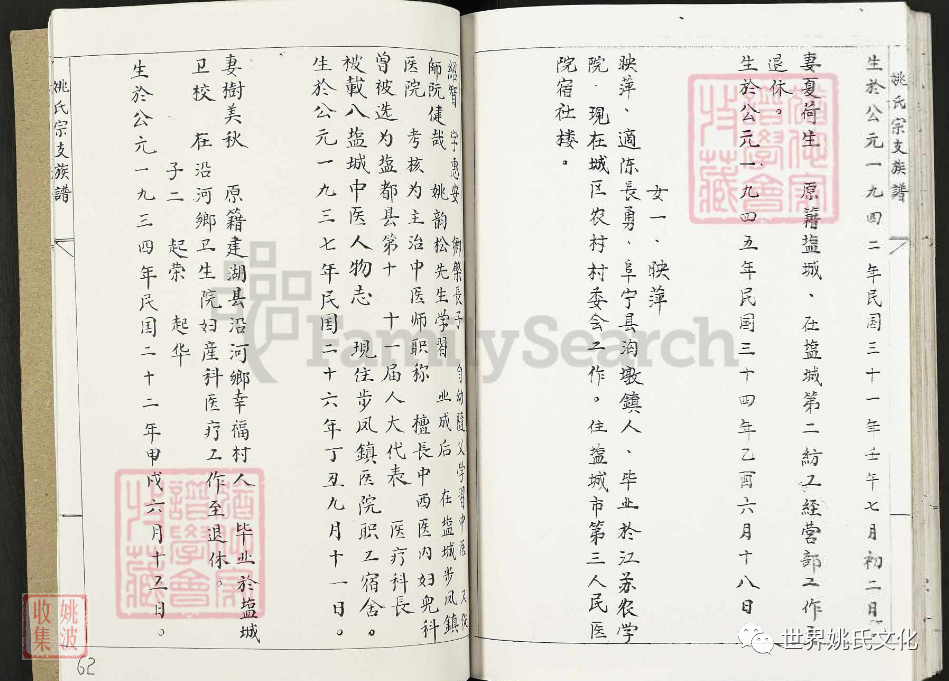 姚氏宗支族譜
生於公元一九四二年民国三十一年壬午七月初二日
妻夏荷生 原籍塩城、在塩城第二紡工経营部工作
退休。
生於公元一九四五年民国三十四年乙酉六月十八日
女一、映萍
映萍、適陈長勇、阜宁县沟墩鎮人、毕业於江苏农学
院 现在城区农村村委会工作。住塩城市第三人民医
院宿社楼。
姚氏宗支族譜
紹智 字惠安 鄉榮長子 自幼隨父学習中医
師阮健哉 姚韵松先生学習 业成后 在塩城步凤鎮
医院 考核为主治中医师职称 擅長中西医内妇兒科
曾被选为塩都县第十 十一届人大代表 医疗科長
被載八塩城中医人物志 现住步凤鎮医院职工宿舍。
生於公元一九三七年民国二十六年丁丑九月十一日。
妻樹美秋 原籍建湖县沿河鄉幸福村人 毕业於塩城
卫校 在沿河鄉卫生院妇産科医疗工作至退休。
子二 起荣 起华
生於公元一九三四年民国二十二年甲戍六月十五日。
62
FamilySearch
姚波
收集
世界姚氏文化